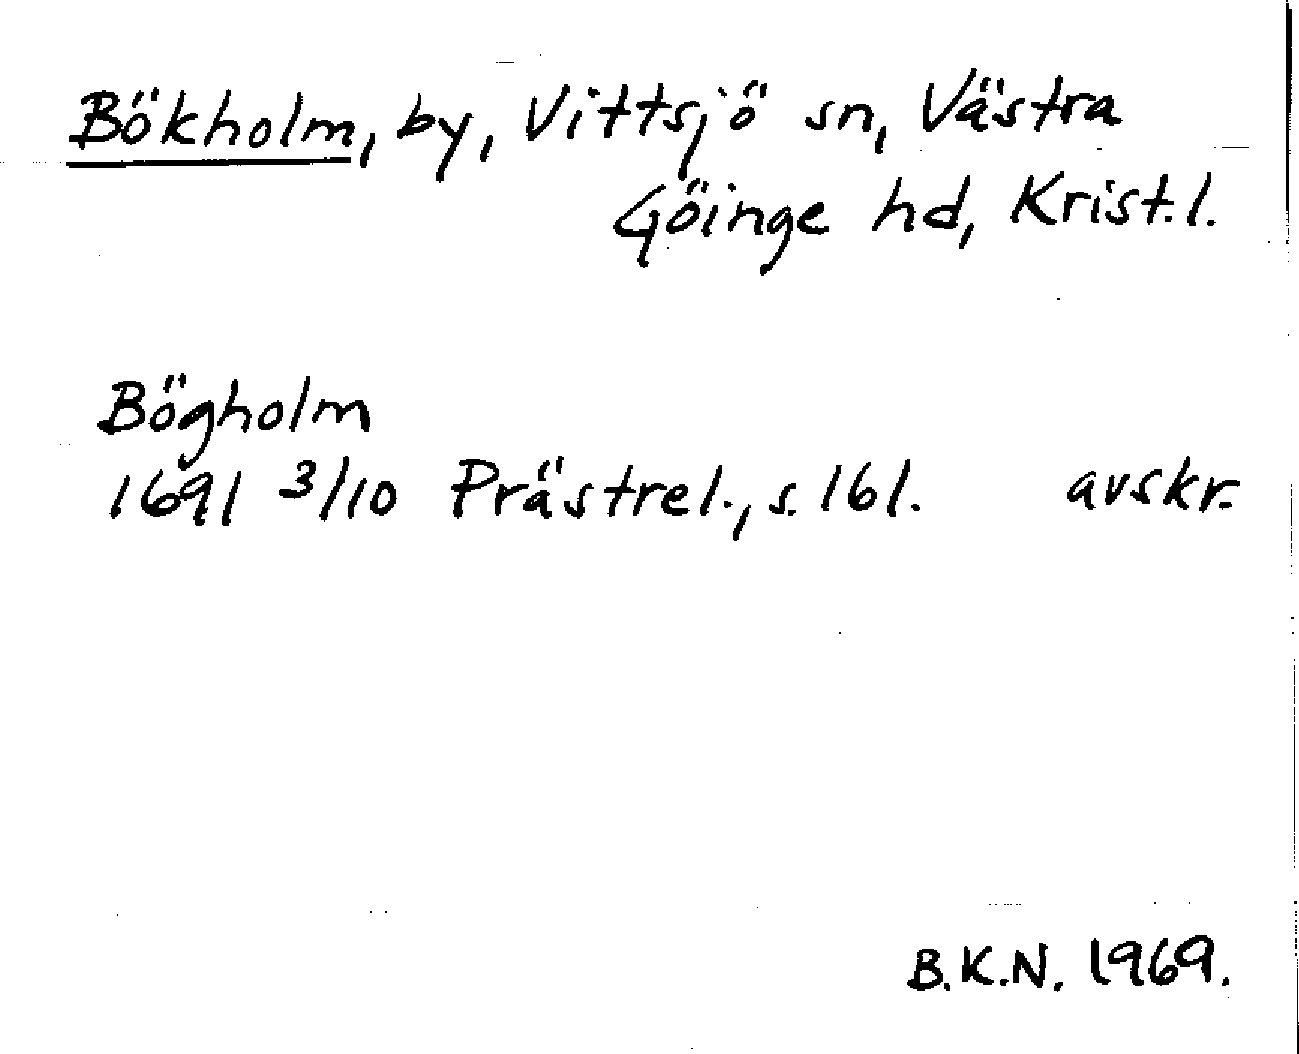 Bökholm, by, Vittsjö sn, Västra
Göinge hd, Krist.l.
Bögholm
1691 3/10 Prästrel., s. 161. avskr.
B.K.N. 1969.